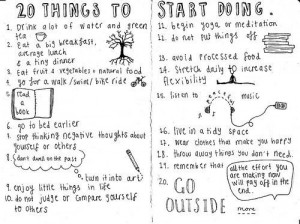 20 THINGS TO START DOING.
1. drink a lot of water and green
tea
2. Eat a big breakfast,
average lunch
& a tiny dinner
3. Eat fruit & vegetables & natural food
4. go for a walk / swim / bike ride
5. read
a
book
6. go to bed earlier
7. stop thinking negative thoughts about
yourself or others
8. don't dwell on the past
turn it into art!
9. enjoy little things in life
10. do not judge or compare yourself
to others
11. begin yoga or meditation
12. do not put things off
13. avoid processed food
14. stretch daily to increase
flexibility
15. listen to music
16. live in a tidy space
17. wear clothes that make you happy
18. throw away things you don't need.
19. remember that all the effort you
are making now
will pay off in the
end.
20. GO
OUTSIDE more